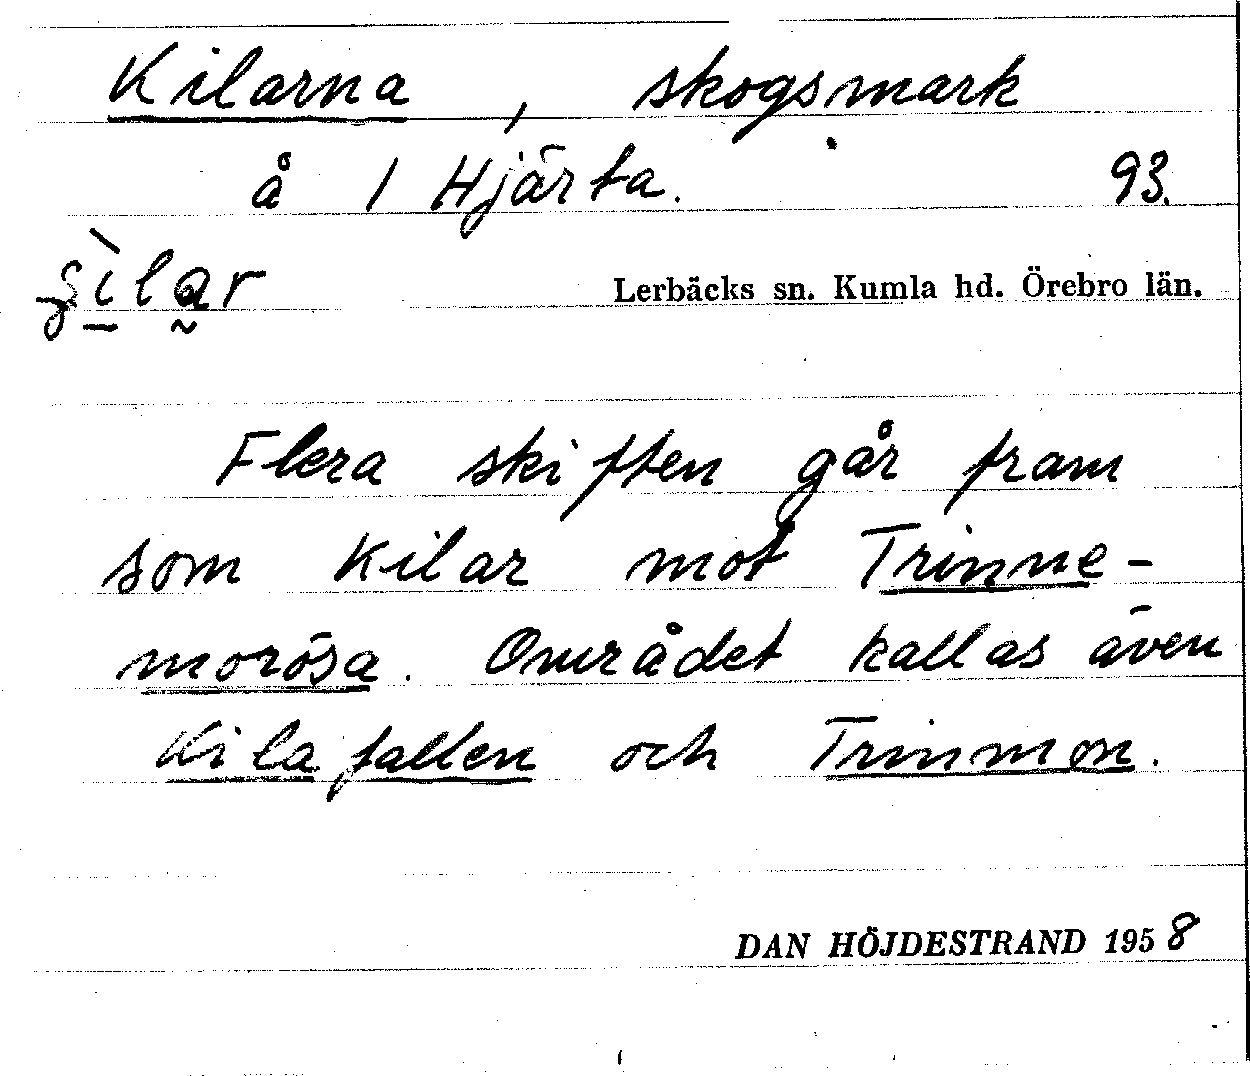 Kilarna, skogsmark
å 1 Hjärta. 93.
Lerbäcks sn. Kumla hd. Örebro län.
Flera skiften går fram
som kilar mot Trinne-
morösa. Området kallas även
Kilafallen och Trinnmon.
DAN HÖJDESTRAND 1958